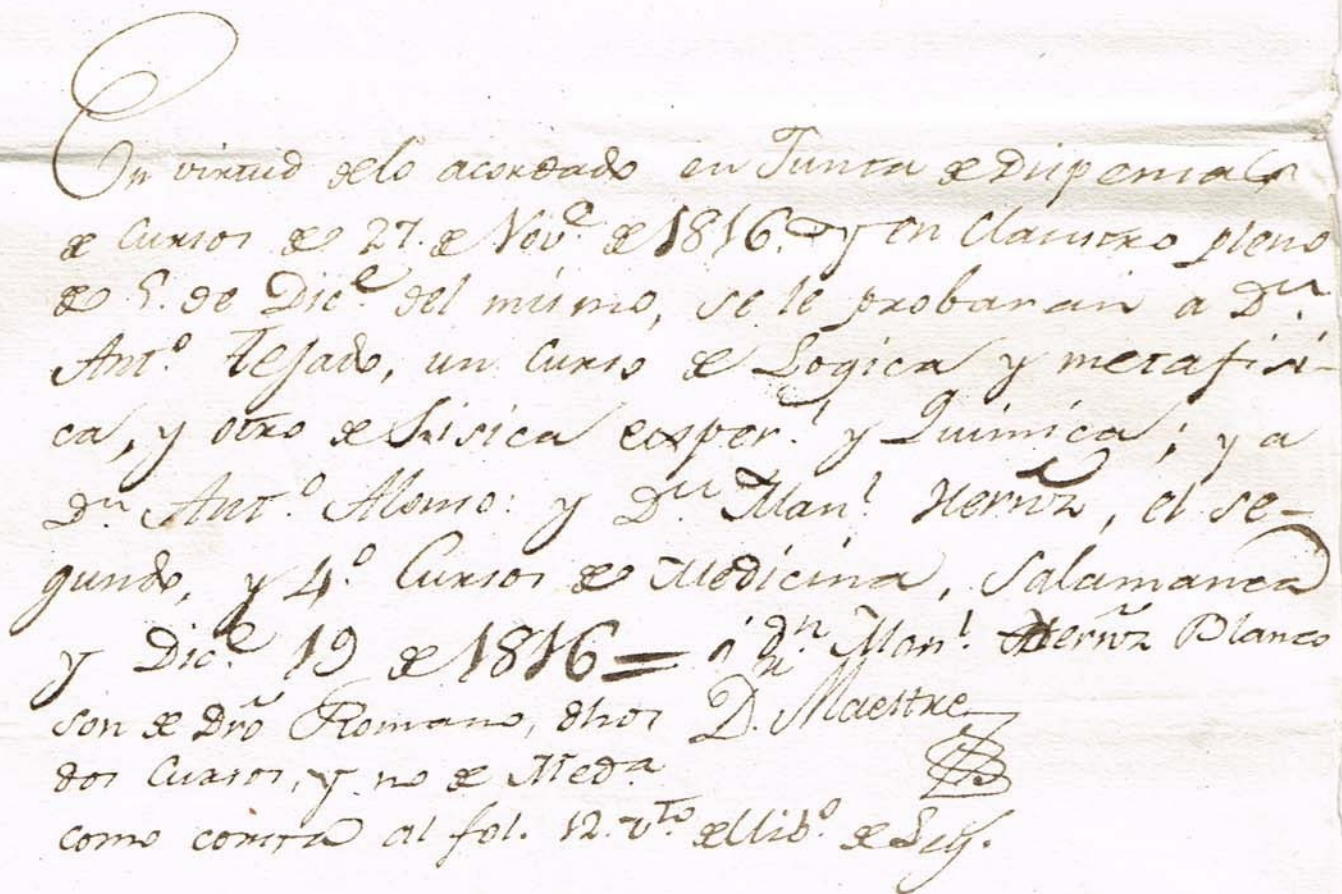 En virtud delo acordado en Junta de Dispensas
de Cursos de 27. de Novᵉ de 1816. y en Claustro pleno
de 5. de Dicᵉ del mismo, se le probarán a Dⁿ.
Antº. Tejado, un Curso de Logica y metafisi-
ca, y otro de Fisica experˡ. y Quimica; y a
Dⁿ Antº. Alonso: y Dⁿ. Manˡ. Hernz̃, el se-
gundo, y 4º. Cursos de Medicina, Salamanca
y Dicᵉ 19 de 1816 = á dⁿ. Manˡ. Hernz̃ Blanco
son de Dr̃o Romano, dhos Dⁿ. Maestre
dos Cursos, y no de Medª
como consta al fol. 12. vᵗᵒ dellibº. de